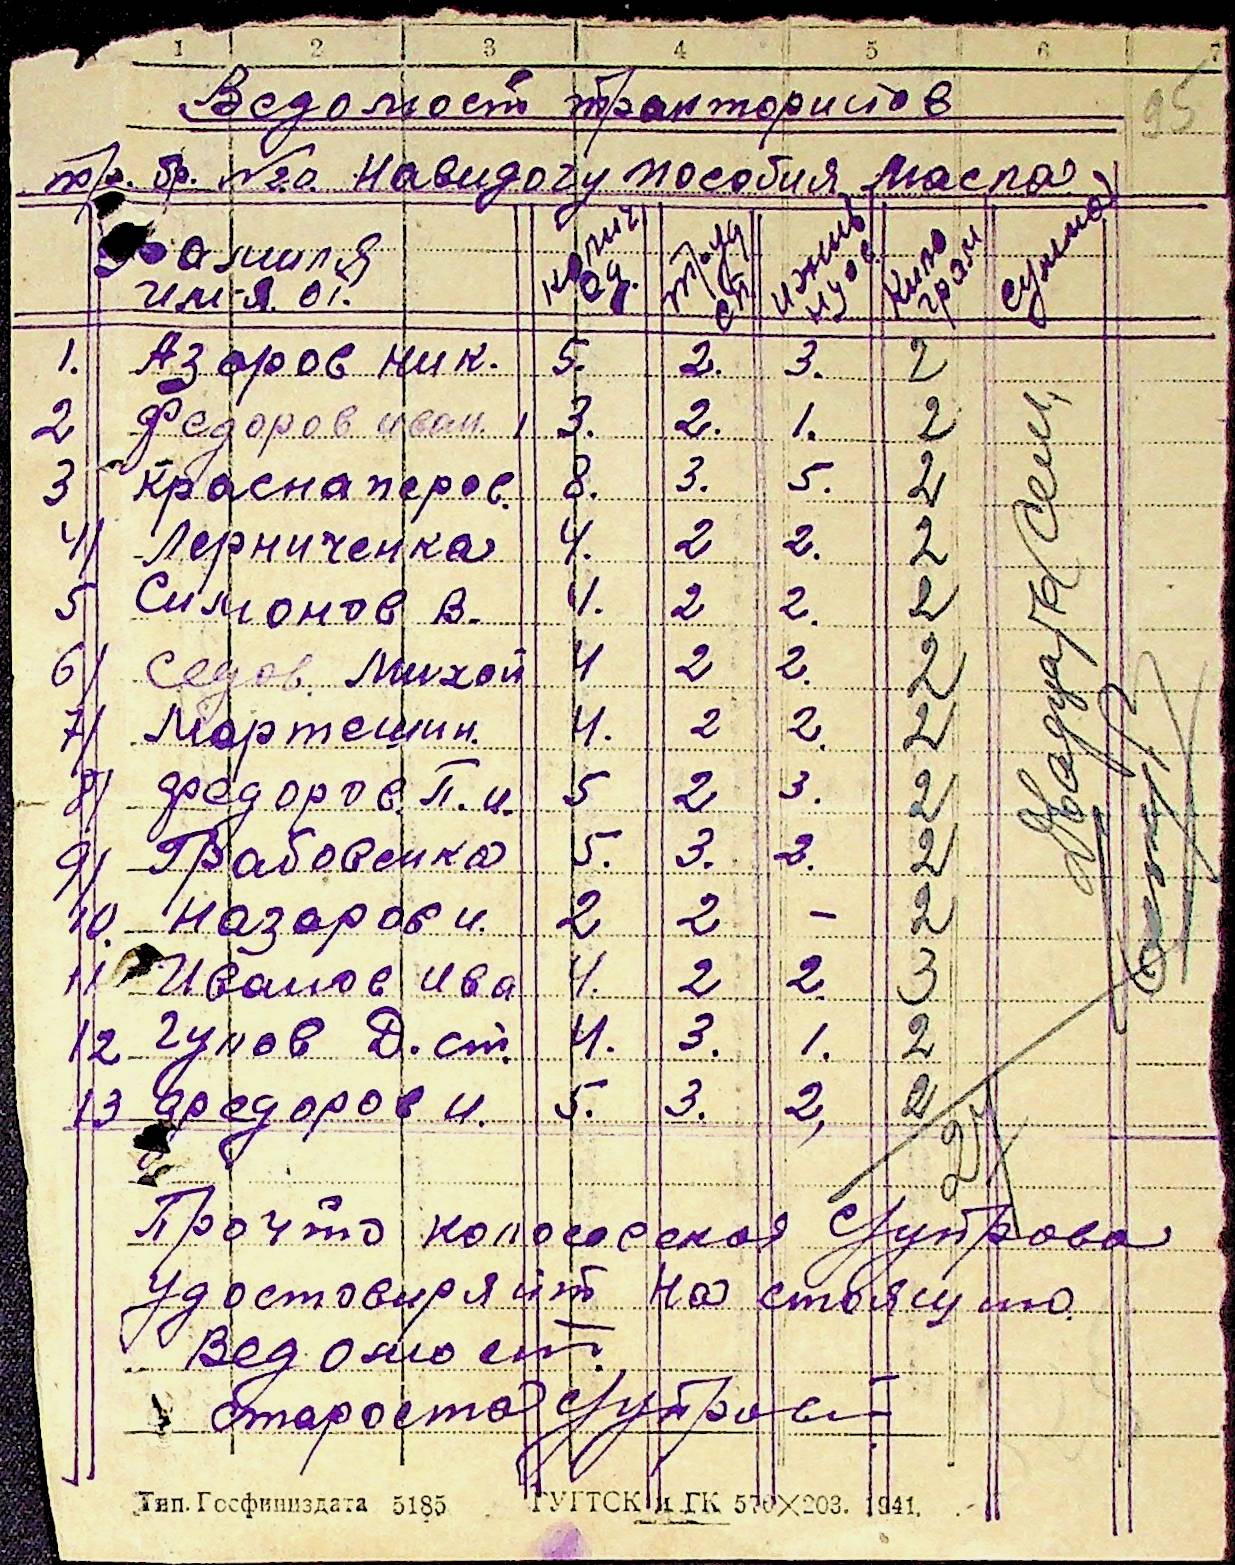 1 2 3 4 5 6 7
95
Ведомост трактористов
тр. бр. №20. Навидочу пособия Масла
Фамиля Колич Труд Ижив Кило Сумма
им-я. от. ед. сп. нуов. грам
1. Азаров Ник. 5. 2. 3. 2
2 Федоров иван. 3. 2. 1. 2
3 Краснаперов. 8. 3. 5. 2
4/ Лерниченка 4. 2 2. 2
5 Симонов В. 4. 2 2. 2
6/ Седов. Михой 4 2 2. 2
7/ Мартешин. 4. 2 2. 2
8/ Федоров. П. и. 5 2 3. 2
9/ Грабовенка 5. 3. 2. 2
10. Назаров и. 2 2 – 2
11 Иванов ива 4. 2 2. 3
12 Гунов Д. ст. 4. 3. 1. 2
13 Федоров и. 5. 3. 2, 2
27
Двадцать семь
Прочто колосовская
Удостовиряйт На стоящию
Ведомост.
Староста
Тип. Госфиниздата 5185 ГУГТСК и ГК 576×203. 1941.